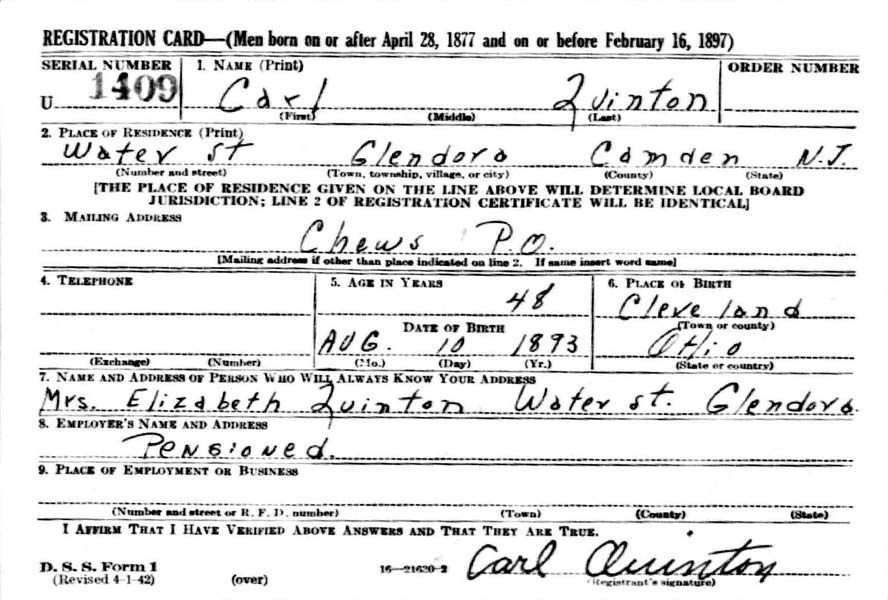 REGISTRATION CARD—(Men born on or after April 28, 1877 and on or before February 16, 1897)
SERIAL NUMBER 1. NAME (Print) ORDER NUMBER
U 1409 Carl Quinton
(First) (Middle) (Last)
2. PLACE OF RESIDENCE (Print)
Water St Glendora Camden N.J.
(Number and street) (Town, township, village, or city) (County) (State)
[THE PLACE OF RESIDENCE GIVEN ON THE LINE ABOVE WILL DETERMINE LOCAL BOARD
JURISDICTION; LINE 2 OF REGISTRATION CERTIFICATE WILL BE IDENTICAL]
3. MAILING ADDRESS
Chews P.O.
[Mailing address if other than place indicated on line 2. If same insert word same]
4. TELEPHONE 5. AGE IN YEARS 6. PLACE OF BIRTH
48 Cleveland
(Town or county)
DATE OF BIRTH
AUG. 10 1893 Ohio
(Exchange) (Number) (Mo.) (Day) (Yr.) (State or country)
7. NAME AND ADDRESS OF PERSON WHO WILL ALWAYS KNOW YOUR ADDRESS
Mrs. Elizabeth Quinton Water st. Glendora.
8. EMPLOYER'S NAME AND ADDRESS
Pensioned.
9. PLACE OF EMPLOYMENT OR BUSINESS
(Number and street or R. F. D. number) (Town) (County) (State)
I AFFIRM THAT I HAVE VERIFIED ABOVE ANSWERS AND THAT THEY ARE TRUE.
D. S. S. Form 1
(Revised 4-1-42) (over) 16—21630-2 Carl Quinton
(Registrant's signature)